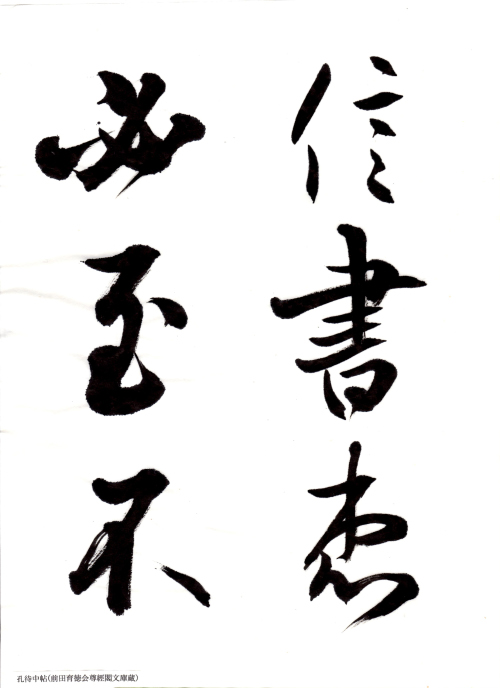 信書想
必至不
孔待中帖(前田育徳会尊經閣文庫蔵)